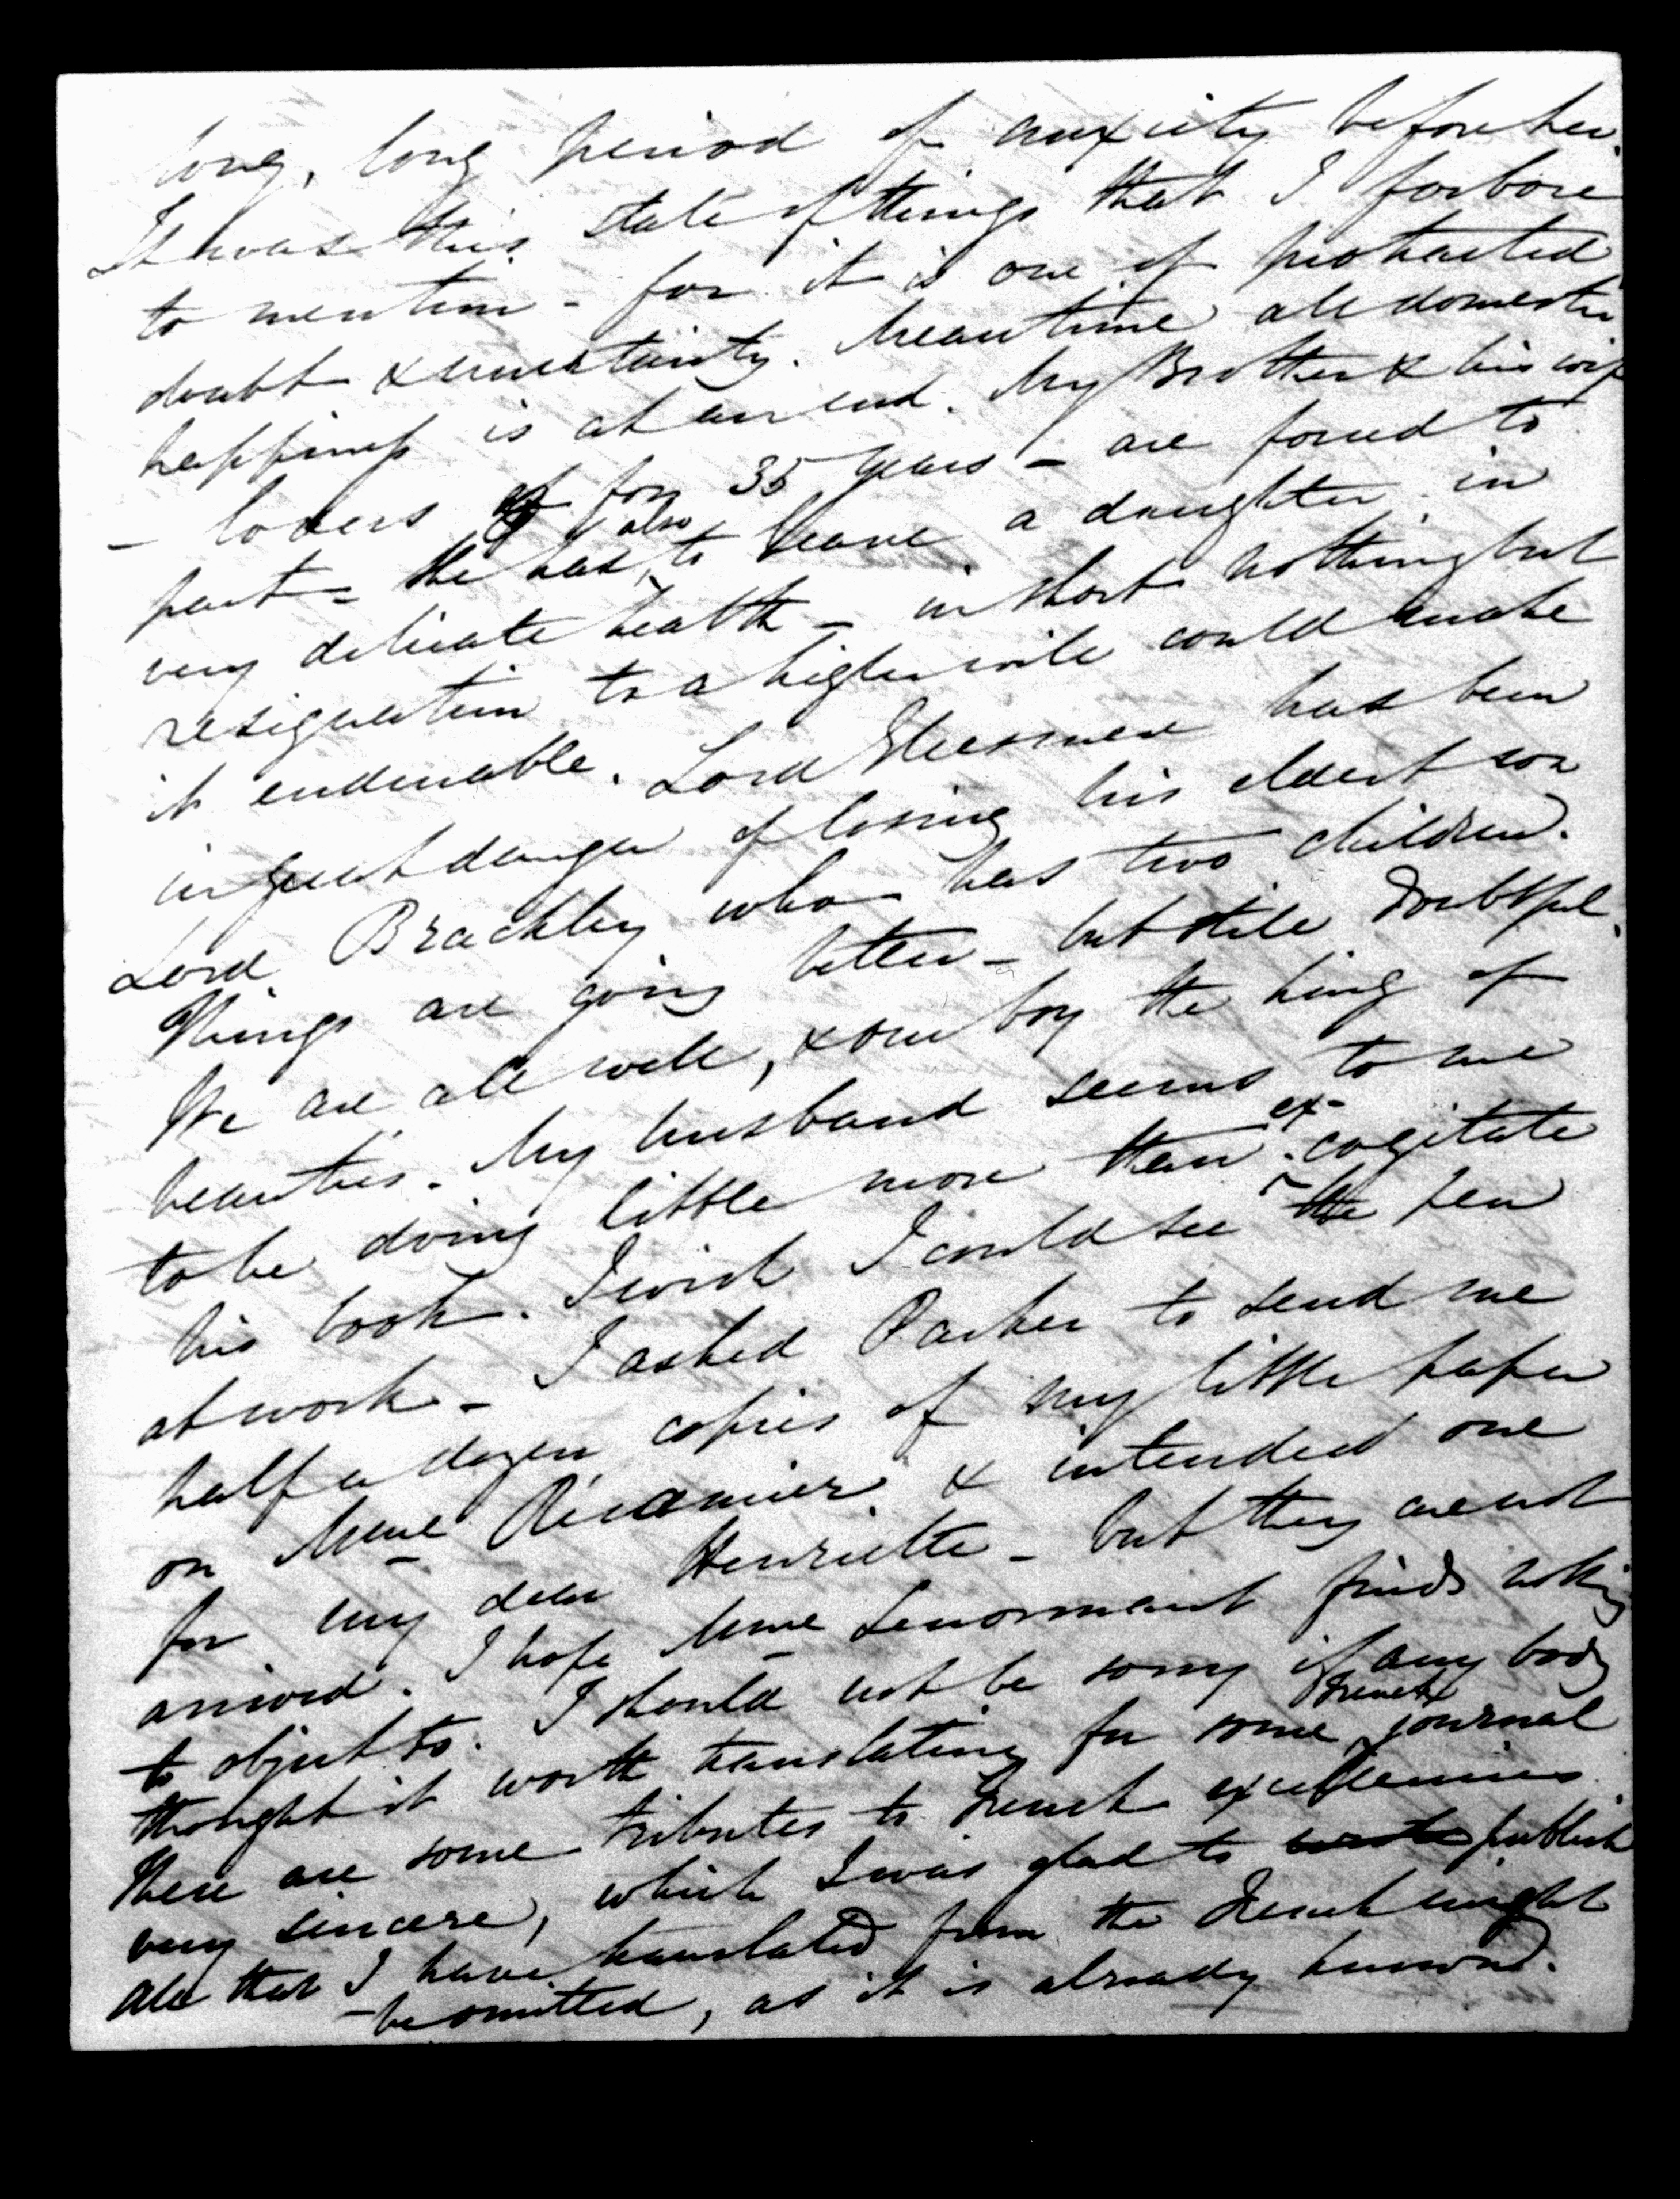 long, long period of anxiety before her.
It was this state of things that I forbore
to mention - for it is one of protracted
doubt & uncertainty. Meantime all domestic
happiness is at an end. My Brother & his wife
- lovers for 35 years - are forced to
part - She has also to leave a daughter in
very delicate health - in short nothing but
resignation to a higher will could make
it endurable. Lord Ellesmere has been
in great danger of losing his eldest son
Lord Brackley who has two children.
Things are going better - but still doubtful.
We are all well, & our boy the king of
beauties. My husband seems to me
to be doing little more than ex-cogitate
his book. I wish I could see the pen
at work - I asked Parker to send me
half a dozen copies of my little paper
on Mme Récamier & intended one
for my dear Henriette - but they are not
arrived. I hope Mme Lenormant finds nothing
to object to. I should not be sorry if any body
thought it worth translating for some French journal
There are some tributes to French excellencies
very sincere, which I was glad to publish
All that I have translated from the French might
be omitted, as it is already known.